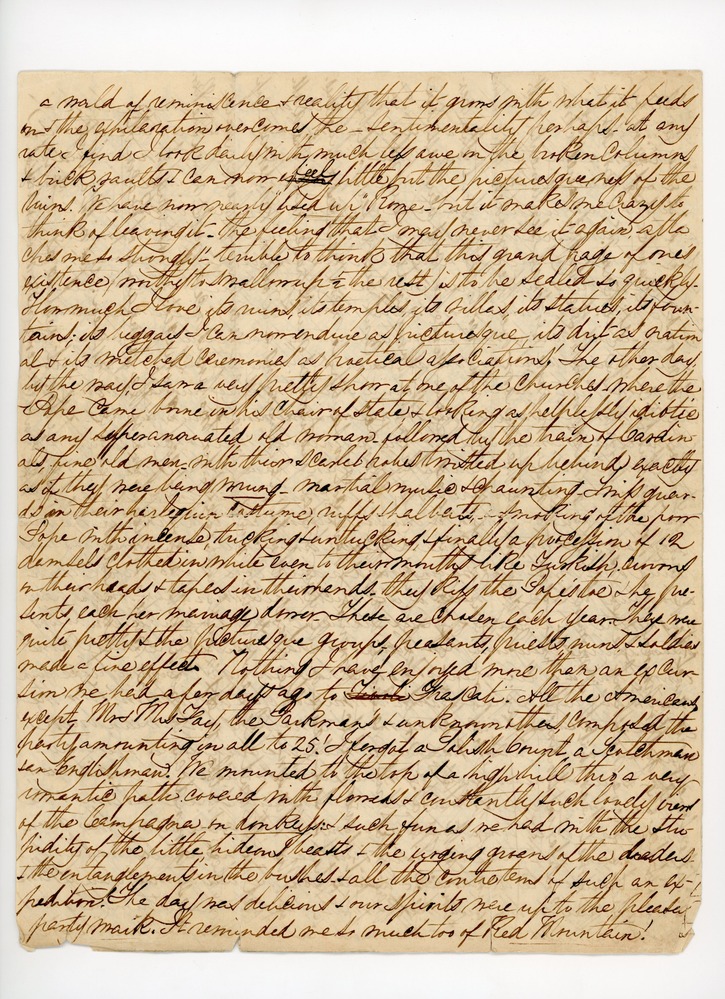 a world of reminiscence & reality that it grows with what it feeds
on & the exhilaration overcomes the sentimentality perhaps. at any
rate I find I look daily with much less awe on the broken columns
& brick vaults & can now little but the picturesqueness of the
ruins. We have now nearly used up Rome - but it makes me crazy to
think of leaving it - the feeling that I may never see it again atta
ches me so strongly - terrible to think that this grand page of ones
existence, worthy to swallow up all the rest, is to be sealed so quickly -
How much I love its ruins, its temples, its villas, its statues, its foun-
tains: its beggars I can now endure as picturesque, its dirt as
al & its wretched ceremonies as poetical associations. The other day
by the way I saw a very pretty show at one of the Churches - where the
Pope came borne in his chair of state & looking as helplessly idiotic
as any superannuated old woman - followed by the train of Cardin
als, fine old men - with their scarlet robes twisted up behind exactly
as if they were being wrung - martial music & chaunting - Swiss guar-
ds in their harlequin costume ruffs & halberts - smoking of the poor
Pope with incense, tucking & untucking & finally a procession of 12
damsels clothed in white even to their mouths like Turkish, crowns
on their heads & tapers in their hands - they kiss the Popes toe & he pre-
sents each her marriage dower. These are chosen each year. They were
quite pretty & the picturesque groups, peasants, priests, nuns & soldiers
made a fine effect. Nothing I have enjoyed more than an excur-
sion we had a few days ago to Frascati. All the Americans
except Mrs the Parkmans & unknown others, composed the
party, amounting in all to 25! I forgot a Polish Count, a Scotchman
& an Englishman. We mounted to the top of a high hill thro a very
romantic path covered with flowers & constantly such lovely views
of the Campagna on donkeys: & such fun as we had with the stu-
pidity of the little hideous beasts & the urging groans of the leaders -
& the entanglements in the bushes & all the contretems of such an ex-
pedition! The day was delicious & our spirits were up to the pleasa
party mark. It reminded me so much too of Red Mountain!